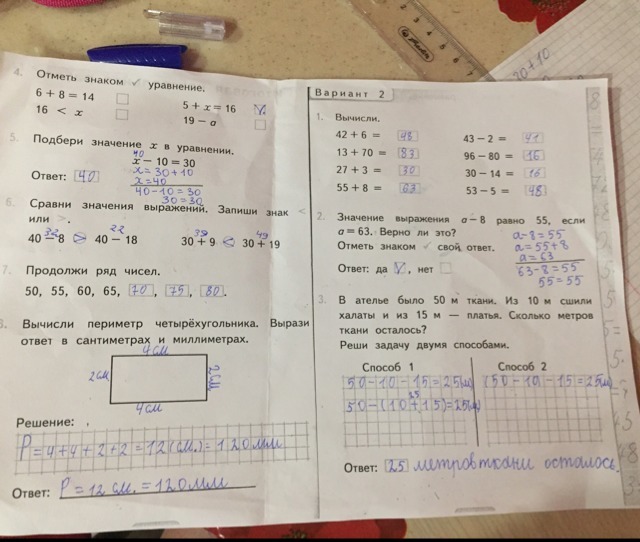 4. Отметь знаком ✓ уравнение.
6 + 8 = 14
5 + x = 16 V
16 < x
19 – a
5. Подбери значение x в уравнении.
40
x – 10 = 30
x = 30+10
Ответ: 40
x=40
40-10=30
30=30
6. Сравни значения выражений. Запиши знак <
или >.
32 22 39 49
40 – 8 > 40 – 18 30 + 9 < 30 + 19
7. Продолжи ряд чисел.
50, 55, 60, 65, 70, 75, 80.
8. Вычисли периметр четырёхугольника. Вырази
ответ в сантиметрах и миллиметрах.
4 см
2 см 2 см
4 см
Решение:
P = 4+4+2+2=12(см.)=120мм
Ответ: P = 12 см. = 120мм
Вариант 2
1. Вычисли.
42 + 6 = 48 43 – 2 = 41
13 + 70 = 83 96 – 80 = 16
27 + 3 = 30 30 – 14 = 16
55 + 8 = 63 53 – 5 = 48
2. Значение выражения a – 8 равно 55, если
a = 63. Верно ли это?
a-8=55
Отметь знаком ✓ свой ответ.
a=55+8
a=63
Ответ: да V, нет
63-8=55
55=55
3. В ателье было 50 м ткани. Из 10 м сшили
халаты и из 15 м — платья. Сколько метров
ткани осталось?
Реши задачу двумя способами.
Способ 1 Способ 2
50-10-15=25(м) (50-10-15=25(м)
25
50-(10+15)=25(м)
Ответ: 25 метров ткани осталось.
20+10